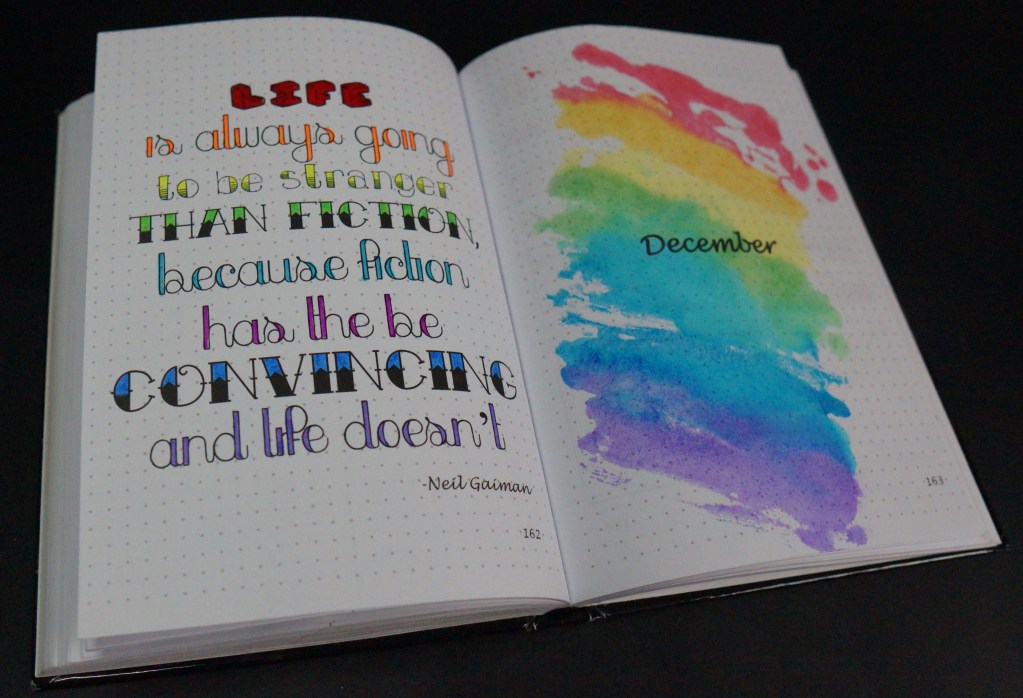 LIFE
is always going
to be stranger
THAN FICTION,
because fiction
has the be
CONVINCING
and life doesn't
-Neil Gaiman
162
December
163